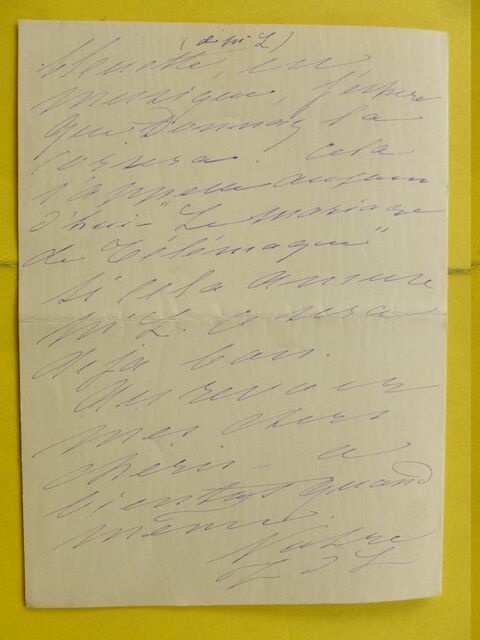 (de M. L)
bluette, en
musique, j'espère
que Donnay la
corsera. cela
s'appelle aujour
d'hui - "Le mariage
de Télémaque"
si cela amuse
M. L. ce sera
déjà bon.
Au revoir
mes chers
chéris - a
bientôt quand
même.
Votre